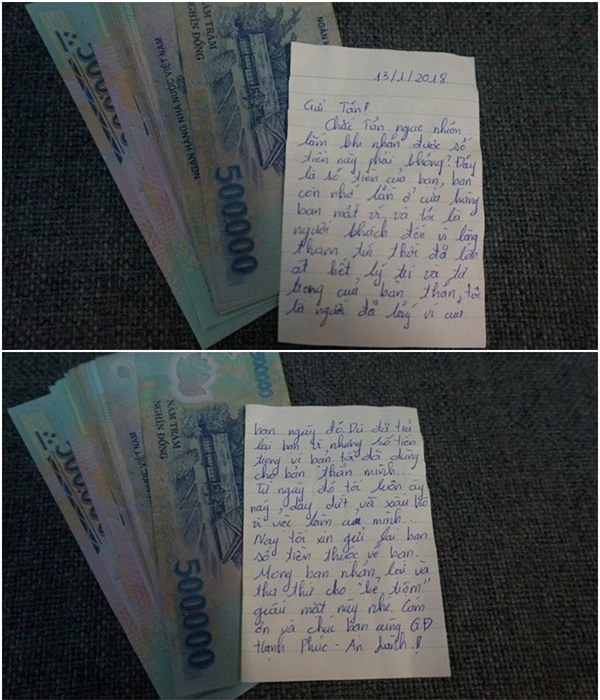 500.000
NGÂN HÀNG NHÀ NƯỚC VIỆT NAM
NĂM TRĂM
NGHÌN ĐỒNG
NGÂN HÀNG
500000
13/1/2018.
Gửi Tấn!
Chắc Tấn ngạc nhiên
lắm khi nhận được số
tiền này phải không? Đấy
là số tiền của bạn, bạn
còn nhớ lần ở cửa hàng
bạn mất ví, và tôi là
người khách đến vì lòng
tham tức thời đã lấn
át hết lý trí và tự
trọng của bản thân, tôi
là người đã lấy ví của
500.000
NĂM TRĂM
NGHÌN ĐỒNG
500000
bạn ngày đó. Dù đã trả
lại bạn ví nhưng số tiền
trong ví bạn tôi đã dùng
cho bản thân mình...
Từ ngày đó tôi luôn áy
náy, dày dứt và xấu hổ
vì việc làm của mình...
Nay tôi xin gửi lại bạn
số tiền thuộc về bạn.
Mong bạn nhận lại và
tha thứ cho "kẻ trộm"
giấu mặt này nhé. Cám
ơn và chúc bạn cùng GĐ
Hạnh Phúc - An Lành.!